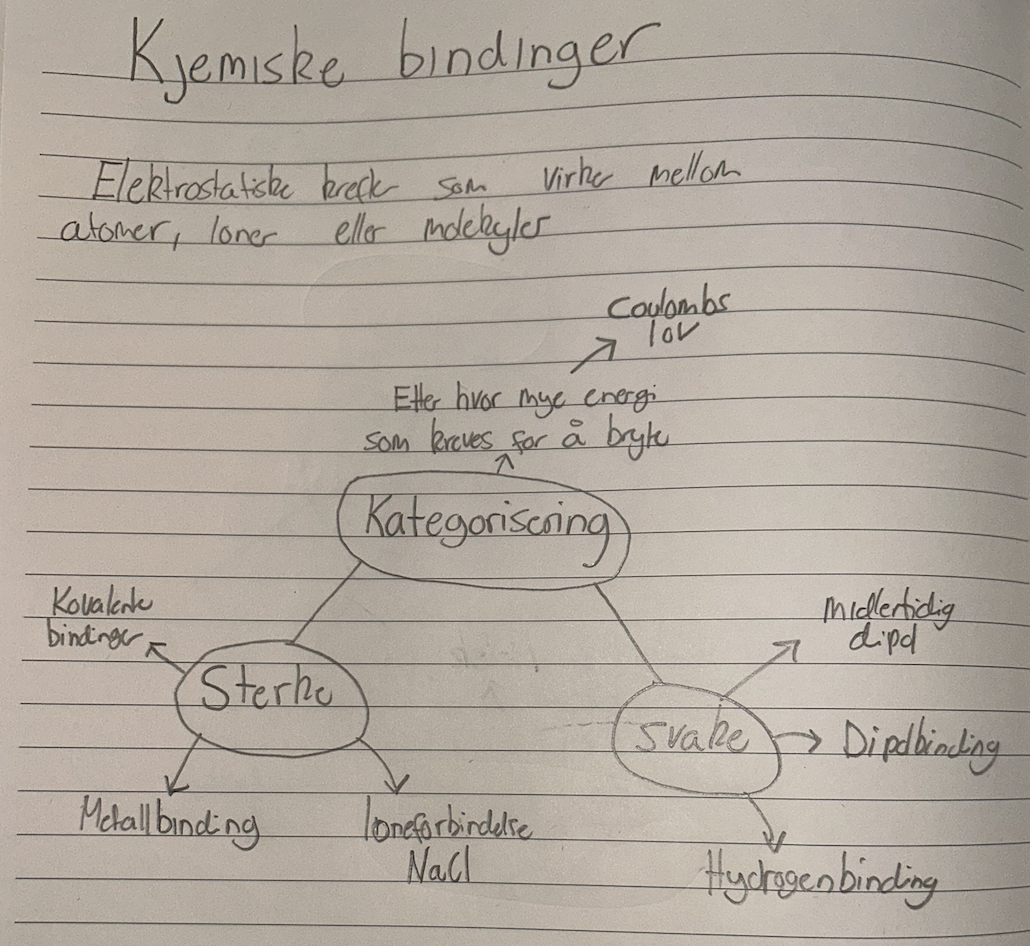 Kjemiske bindinger
Elektrostatiske krefter som virke mellom
atomer, Ioner eller molekyler
Coulombs
lov
Etter hvor mye energi
som kreves for å bryte
Kategorisering
Kovalente
bindinger
Midlertidig
dipol
Sterke
svake
Dipolbinding
Metallbinding
Ioneforbindelse
NaCl
Hydrogenbinding